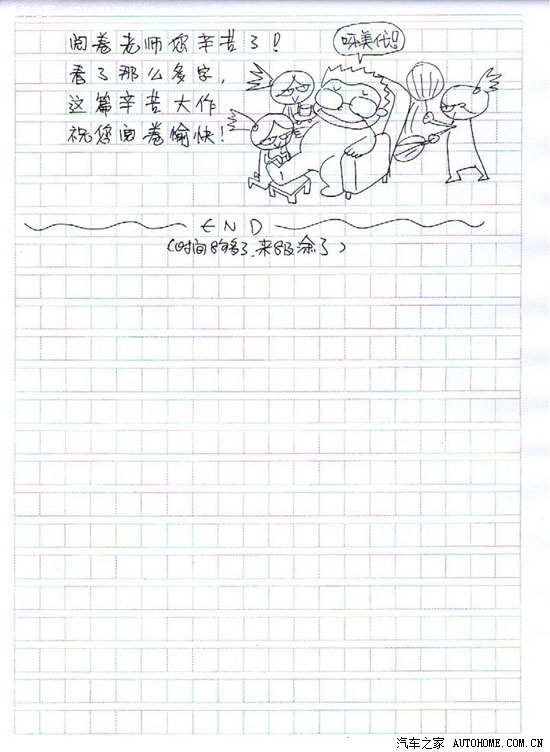 阅卷老师您辛苦了!
呀美伐!
看了那么多字,
这篇辛苦大作
祝您阅卷愉快!
END
(时间够了,来及涂了)
汽车之家 AUTOHOME.COM.CN